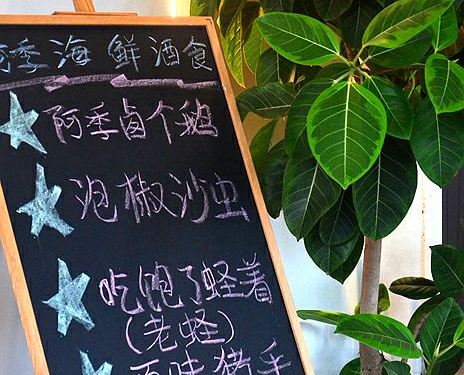 阿季海鲜酒食
阿季卤个鹅
泡椒沙虫
吃饱了蛏着
(老蛏)
百味猪手